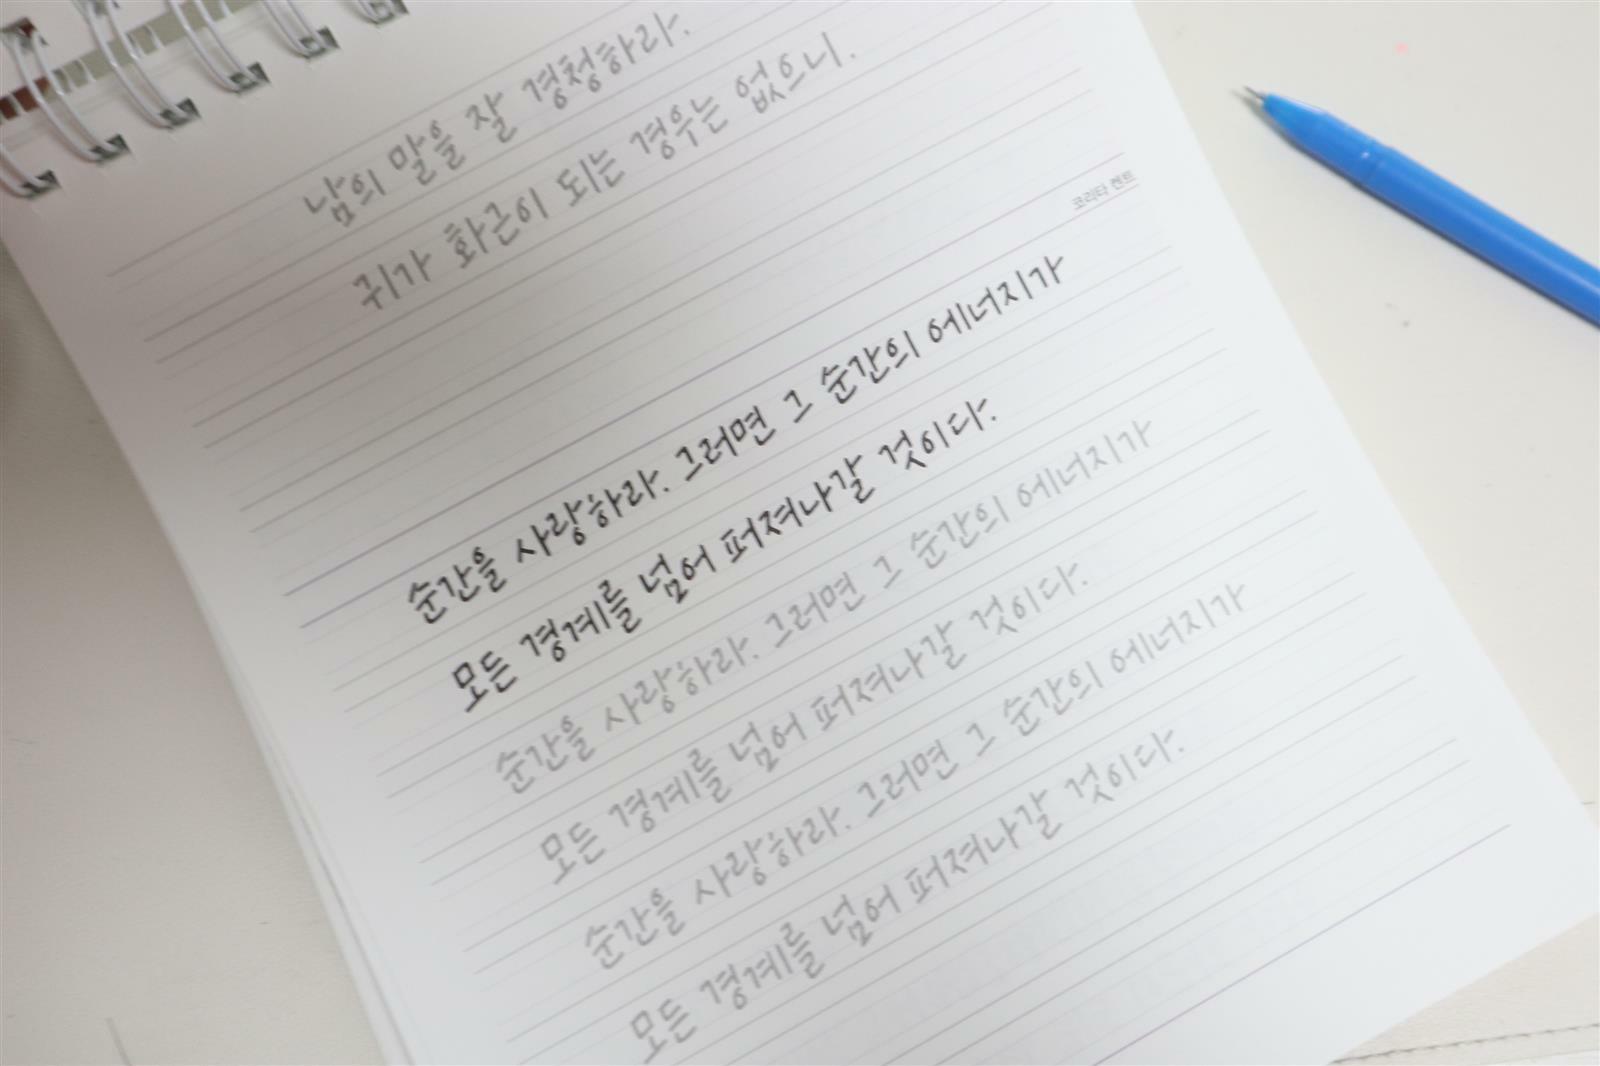 남의 말을 잘 경청하라.
귀가 화근이 되는 경우는 없으니.
코리타 켄트
순간을 사랑하라. 그러면 그 순간의 에너지가
모든 경계를 넘어 퍼져나갈 것이다.
순간을 사랑하라. 그러면 그 순간의 에너지가
모든 경계를 넘어 퍼져나갈 것이다.
순간을 사랑하라. 그러면 그 순간의 에너지가
모든 경계를 넘어 퍼져나갈 것이다.